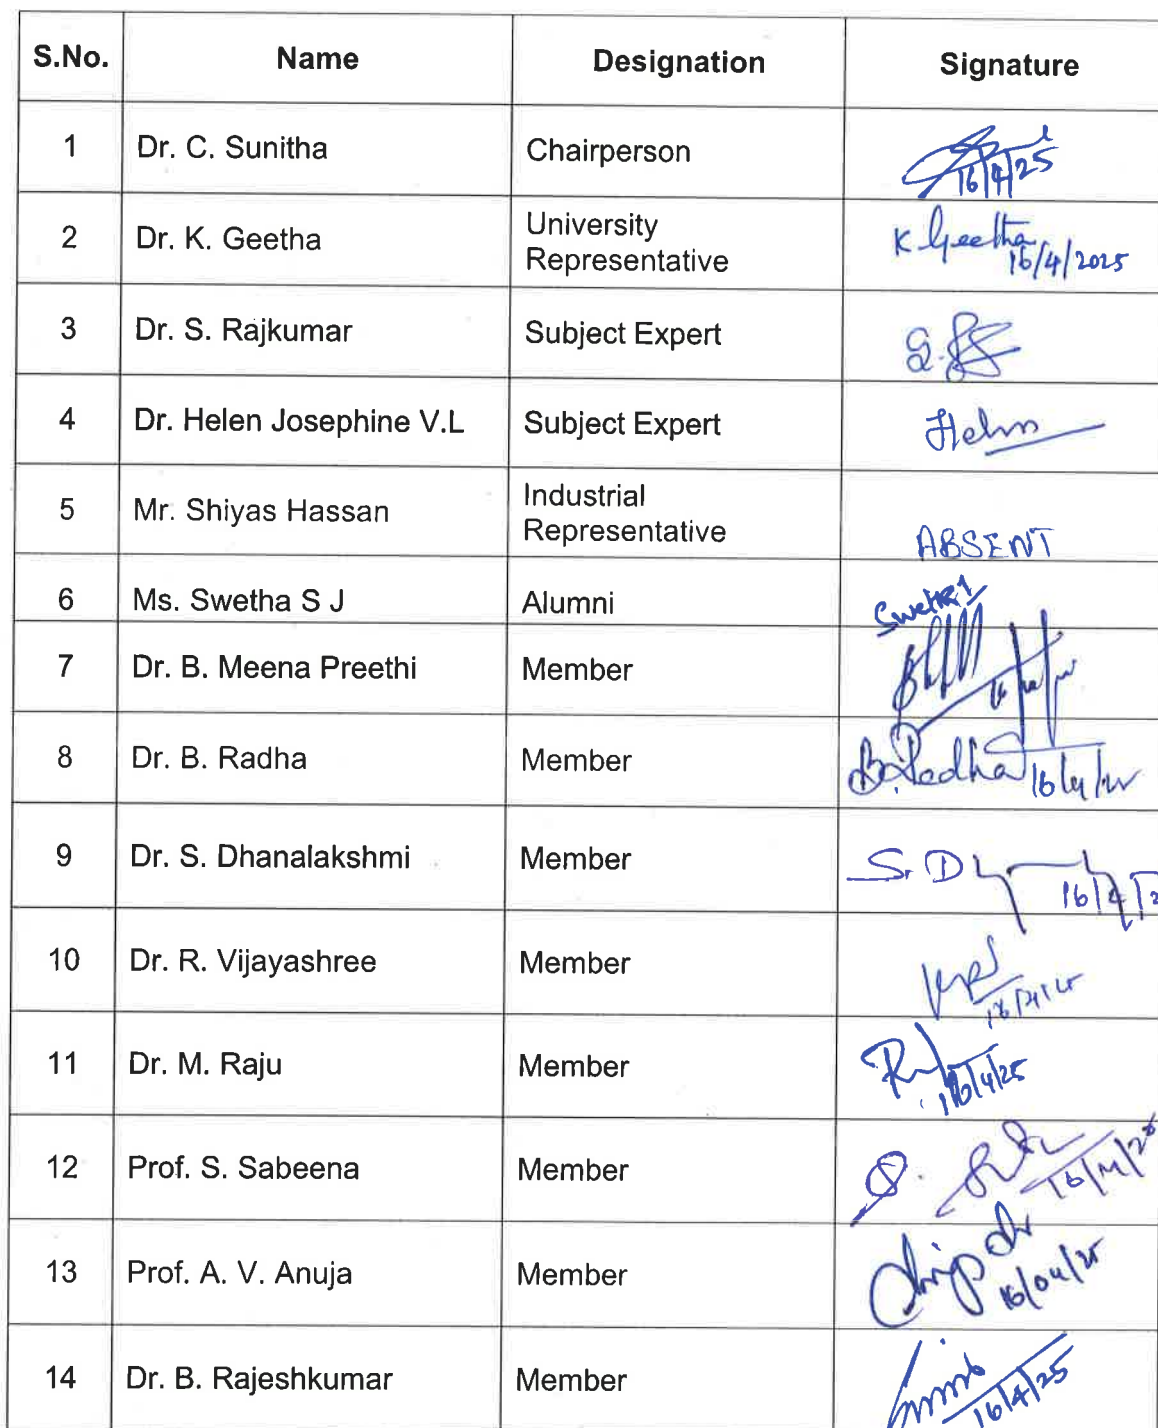 S.No. Name Designation Signature
1 Dr. C. Sunitha Chairperson 16/4/25
2 Dr. K. Geetha University Representative K Geetha 16/4/2025
3 Dr. S. Rajkumar Subject Expert S.
4 Dr. Helen Josephine V.L Subject Expert Helen
5 Mr. Shiyas Hassan Industrial Representative ABSENT
6 Ms. Swetha S J Alumni
7 Dr. B. Meena Preethi Member
8 Dr. B. Radha Member B. Radha 16/4/25
9 Dr. S. Dhanalakshmi Member S. D 16/4/2
10 Dr. R. Vijayashree Member 16/4/25
11 Dr. M. Raju Member 16/4/25
12 Prof. S. Sabeena Member S. 16/4/25
13 Prof. A. V. Anuja Member 16/04/25
14 Dr. B. Rajeshkumar Member 16/4/25